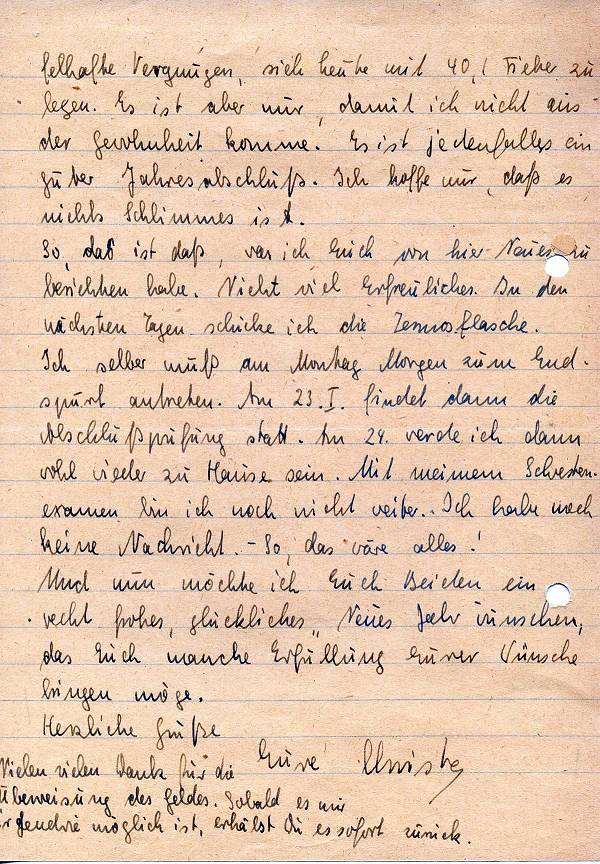 felhafte Vergnügen, sich heute mit 40,1 Fieber zu
legen. Es ist aber nur, damit ich nicht aus
der Gewohnheit komme. Es ist jedenfalles ein
guter Jahresabschluß. Ich hoffe nur, daß es
nichts Schlimmes ist.
So, das ist daß, was ich Euch von hier Neues zu
berichten habe. Nicht viel Erfreuliches. In den
nächsten Tagen schicke ich die Termosflasche.
Ich selber muß am Montag Morgen zum End-
spurt antreten. Am 23. I. findet dann die
Abschlußprüfung statt. Am 24. werde ich dann
wohl wieder zu Hause sein. Mit meinem Schwestern-
examen bin ich noch nicht weiter. Ich habe noch
keine Nachricht. – So, das wäre alles!
Und nun möchte ich Euch Beiden ein
recht frohes, glückliches Neues Jahr wünschen,
das Euch manche Erfüllung Eurer Wünsche
bringen möge.
Herzliche Grüße
Eure
Vielen vielen Dank für die
Überweisung des Geldes. Sobald es mir
irgendwie möglich ist, erhälst Du es sofort zurück.